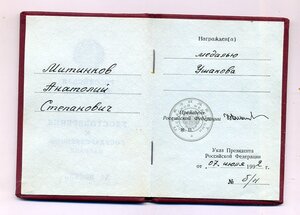 Митинков
Анатолий
Степанович
Награжден(а)
медалью
Ушакова
Президент
Российской Федерации
Указ Президента
Российской Федерации
от 07 июля 1992 г
№ б/н